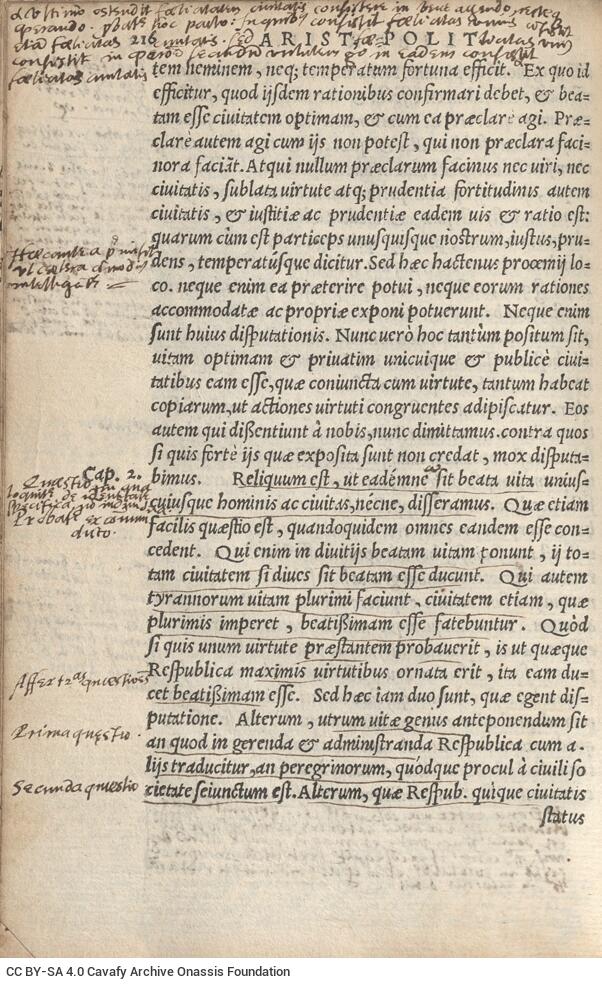 ultimo ostendit fœlicitatem civitatis consistere in bene agendo
operando. hoc pacto: si quidem consistit fœlicitas unius
etiã fœlicitas civitatis. sed
216 ARIST. POLIT.
consistit in eadem consistit
fœlicitas civitatis
tem heminem, neq; temperatum fortuna efficit. Ex quo id
efficitur, quod ijsdem rationibus confirmari debet, & bea-
tam esse ciuitatem optimam, & cum ea præclare agi. Præ-
clarè autem agi cum ijs non potest, qui non præclara faci-
nora faciãt. Atqui nullum præclarum facinus nec uiri, nec
ciuitatis, sublata uirtute atq; prudentia fortitudinis autem
ciuitatis, & iustitiæ ac prudentiæ eadem uis & ratio est:
quarum cùm est particeps unusquisque nostrum, iustus, pru-
dens, temperatúsque dicitur. Sed hæc hactenus proœmij lo-
co. neque enim ea præterire potui, neque eorum rationes
accommodatæ ac propriæ exponi potuerunt. Neque enim
sunt huius disputationis. Nunc uerò hoc tantùm positum sit,
uitam optimam & priuatim unicuique & publicè ciui-
tatibus eam esse, quæ coniuncta cum uirtute, tantum habeat
copiarum, ut actiones uirtuti congruentes adipiscatur. Eos
autem qui dissentiunt à nobis, nunc dimittamus. contra quos
si quis fortè ijs quæ exposita sunt non credat, mox disputa-
Cap. 2.
bimus. Reliquum est, ut eadémne sit beata uita unius-
cuiusque hominis ac ciuitas, nécne, disseramus. Quæ etiam
facilis quæstio est, quandoquidem omnes eandem esse con-
cedent. Qui enim in diuitijs beatam uitam ponunt, ij to-
tam ciuitatem si diues sit beatam esse ducunt. Qui autem
tyrannorum uitam plurimi faciunt, ciuitatem etiam, quæ
plurimis imperet, beatissimam esse fatebuntur. Quòd
si quis unum uirtute præstantem probauerit, is ut quæque
Respublica maximis uirtutibus ornata erit, ita eam du-
cet beatissimam esse. Sed hæc iam duo sunt, quæ egent dis-
putatione. Alterum, utrum uitæ genus anteponendum sit
an quod in gerenda & administranda Respublica cum a-
lijs traducitur, an peregrinorum, quódque procul à ciuili so
cietate seiunctum est. Alterum, quæ Respub. quíque ciuitatis
status
intelligas
Quæstio
Probat ex communi
dicto.
Affert 2as quæstiones
Prima quęstio.
Secunda quæstio
CC BY-SA 4.0 Cavafy Archive Onassis Foundation